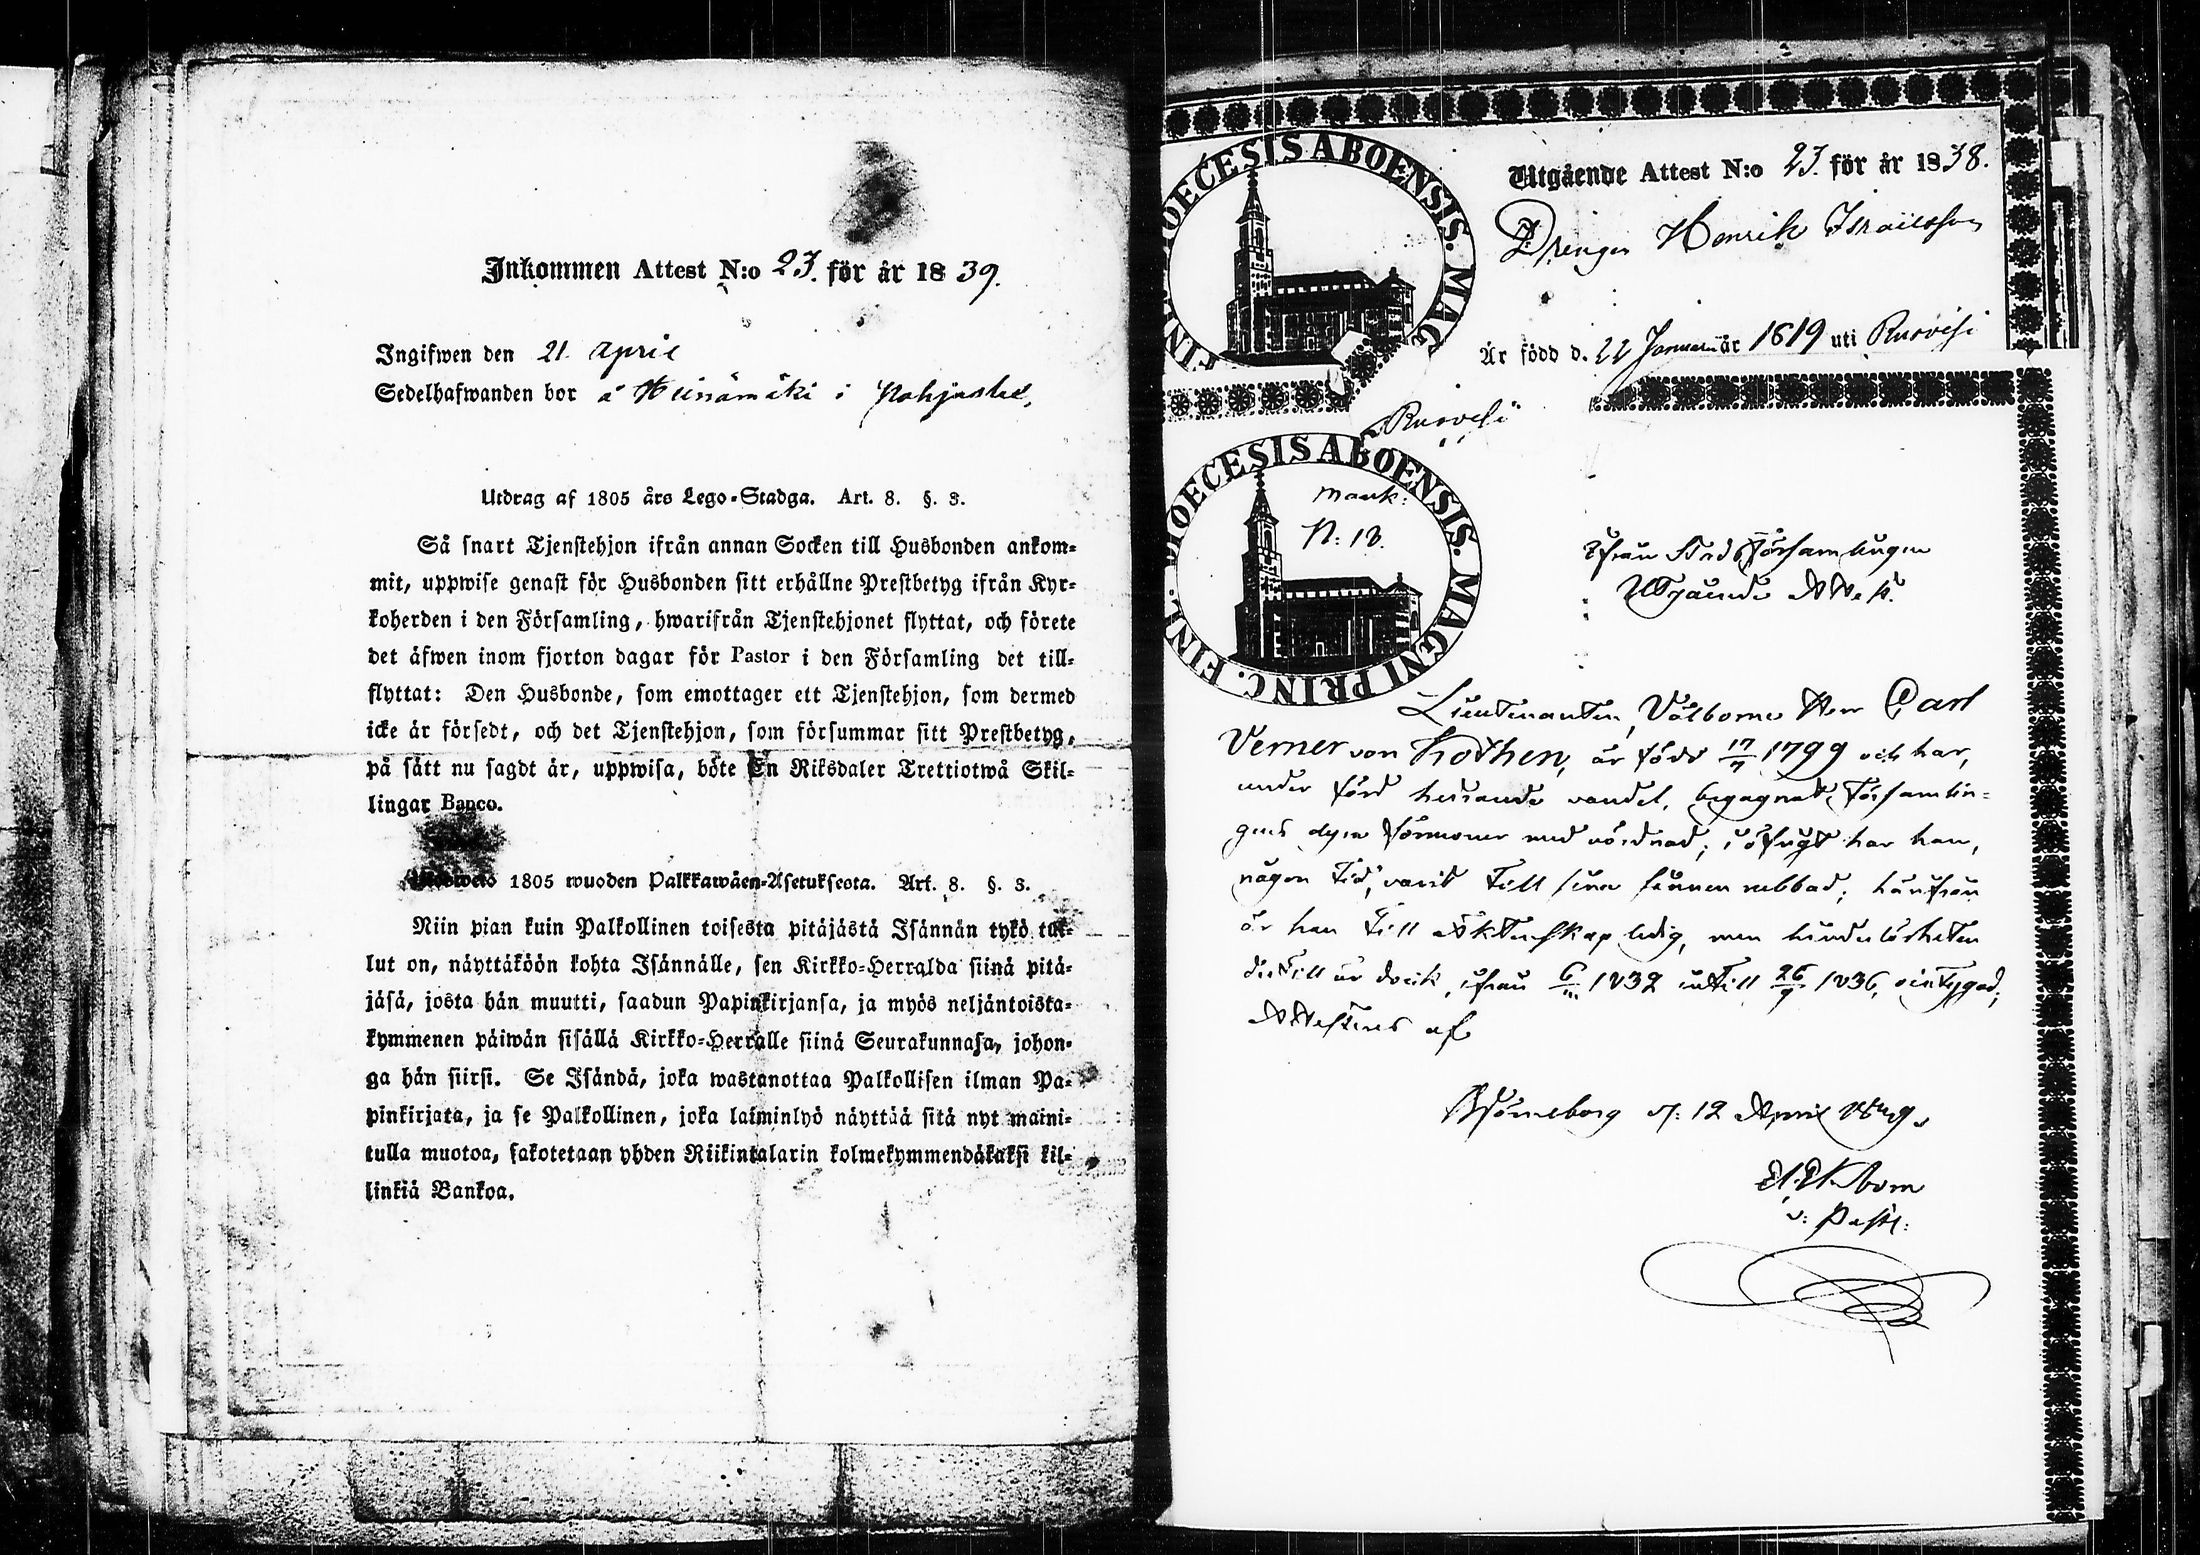 Inkommen Attest N:o 23. för år 1839.
Ingifwen den 21 April
Sedelhafwanden bor å Heinämäki i
Utdrag af 1805 års Lego-Stadga. Art. 8. §. 3.
Så snart Tjenstehjon ifrån annan Socken till Husbonden ankom-
mit, uppwise genast för Husbonden sitt erhållne Prestbetyg ifrån Kyr-
koherden i den Församling, hwarifrån Tjenstehjonet flyttat, och förete
det äfwen inom fjorton dagar för Pastor i den Församling det till-
flyttat: Den Husbonde, som emottager ett Tjenstehjon, som dermed
icke är försedt, och det Tjenstehjon, som försummar sitt Prestbetyg,
på sätt nu sagdt är, uppwisa, böte En Riksdaler Trettiotwå Skil-
lingar Banco.
1805 wuoden Palkkawäen-Asetuksesta. Art. 8. §. 3.
Niin pian kuin Palkollinen toisesta pitäjästä Isännän tykö tul-
lut on, näyttäköön kohta Isännälle, sen Kirkko-Herralda siinä pitä-
jäsä, josta hän muutti, saadun Papinkirjansa, ja myös neljäntoista-
kymmenen päiwän sisällä Kirkko-Herralle siinä Seurakunnasa, johon-
ga hän siirsi. Se Isändä, joka wastanottaa Palkollisen ilman Pa-
pinkirjata, ja se Palkollinen, joka laiminlyö näyttää sitä nyt maini-
tulla muotoa, sakotetaan yhden Riikintalarin kolmekymmendäkaksi kil-
linkiä Bankoa.
DIOECESIS ABOENSIS. MAG
FIN
Utgående Attest N:o 23. för år 1838.
Drengen Henrik Israelsson
Är född d. 22 Januari år 1819 uti Ruovesi
Ruovesi
DIOECESIS ABOENSIS. MAGNI PRINC. FINL.
N: 18.
Ifrån Stads Församlingen
Utgående Attest.
Lieutenanten, Välborne Herr Carl
Verner von Kothen, är född 17/7 1799 och har,
under förd hedrande vandel, begagnat Församlin-
gens dyra förmoner med vördnad; i öfrigt har han,
någon tid, varit till sina sinnen rubbad; härifrån
är han till Äktenskap ledig, men hinderlösheten
dertill är dock, ifrån 1832 intill 26/9 1836, obetygad;
Attesteras af
Björneborg d: 12 April 1839.
v: Past: